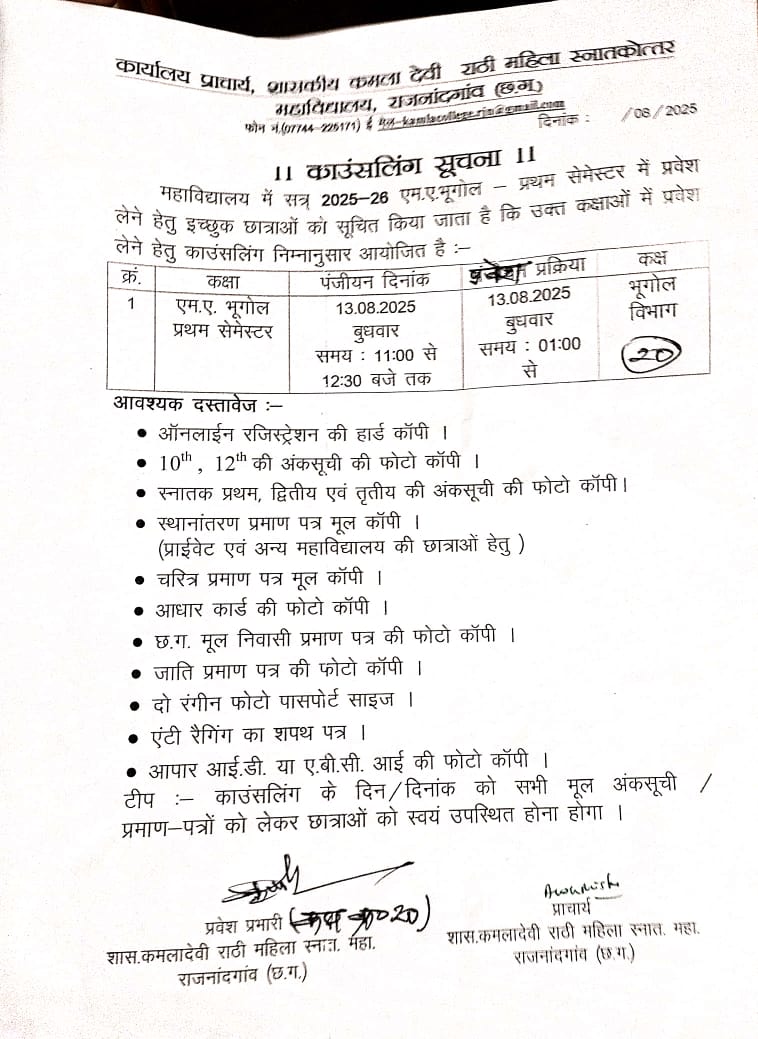 कार्यालय प्राचार्य, शासकीय कमला देवी राठी महिला स्नातकोत्तर
महाविद्यालय, राजनांदगांव (छ.ग.)
फोन नं.(07744-225171) ई
दिनांक : /08/2025
।। काउंसलिंग सूचना ।।
महाविद्यालय में सत्र 2025-26 एम.ए.भूगोल – प्रथम सेमेस्टर में प्रवेश
लेने हेतु इच्छुक छात्राओं को सूचित किया जाता है कि उक्त कक्षाओं में प्रवेश
लेने हेतु काउंसलिंग निम्नानुसार आयोजित है :–
क्रं. कक्षा पंजीयन दिनांक प्रवेश प्रक्रिया कक्ष
1 एम.ए. भूगोल 13.08.2025 13.08.2025 भूगोल
प्रथम सेमेस्टर बुधवार बुधवार विभाग
समय : 11:00 से समय : 01:00 20
12:30 बजे तक से
आवश्यक दस्तावेज :–
• ऑनलाईन रजिस्ट्रेशन की हार्ड कॉपी ।
• 10th , 12th की अंकसूची की फोटो कॉपी ।
• स्नातक प्रथम, द्वितीय एवं तृतीय की अंकसूची की फोटो कॉपी।
• स्थानांतरण प्रमाण पत्र मूल कॉपी ।
(प्राईवेट एवं अन्य महाविद्यालय की छात्राओं हेतु )
• चरित्र प्रमाण पत्र मूल कॉपी ।
• आधार कार्ड की फोटो कॉपी ।
• छ.ग. मूल निवासी प्रमाण पत्र की फोटो कॉपी ।
• जाति प्रमाण पत्र की फोटो कॉपी ।
• दो रंगीन फोटो पासपोर्ट साइज ।
• एंटी रैगिंग का शपथ पत्र ।
• आपार आई.डी. या ए.बी.सी. आई की फोटो कॉपी ।
टीप :– काउंसलिंग के दिन/दिनांक को सभी मूल अंकसूची /
प्रमाण–पत्रों को लेकर छात्राओं को स्वयं उपस्थित होना होगा ।
प्रवेश प्रभारी (कक्ष क्र० 20)
शास.कमलादेवी राठी महिला स्नात. महा.
राजनांदगांव (छ.ग.)
प्राचार्य
शास.कमलादेवी राठी महिला स्नात. महा.
राजनांदगांव (छ.ग.)